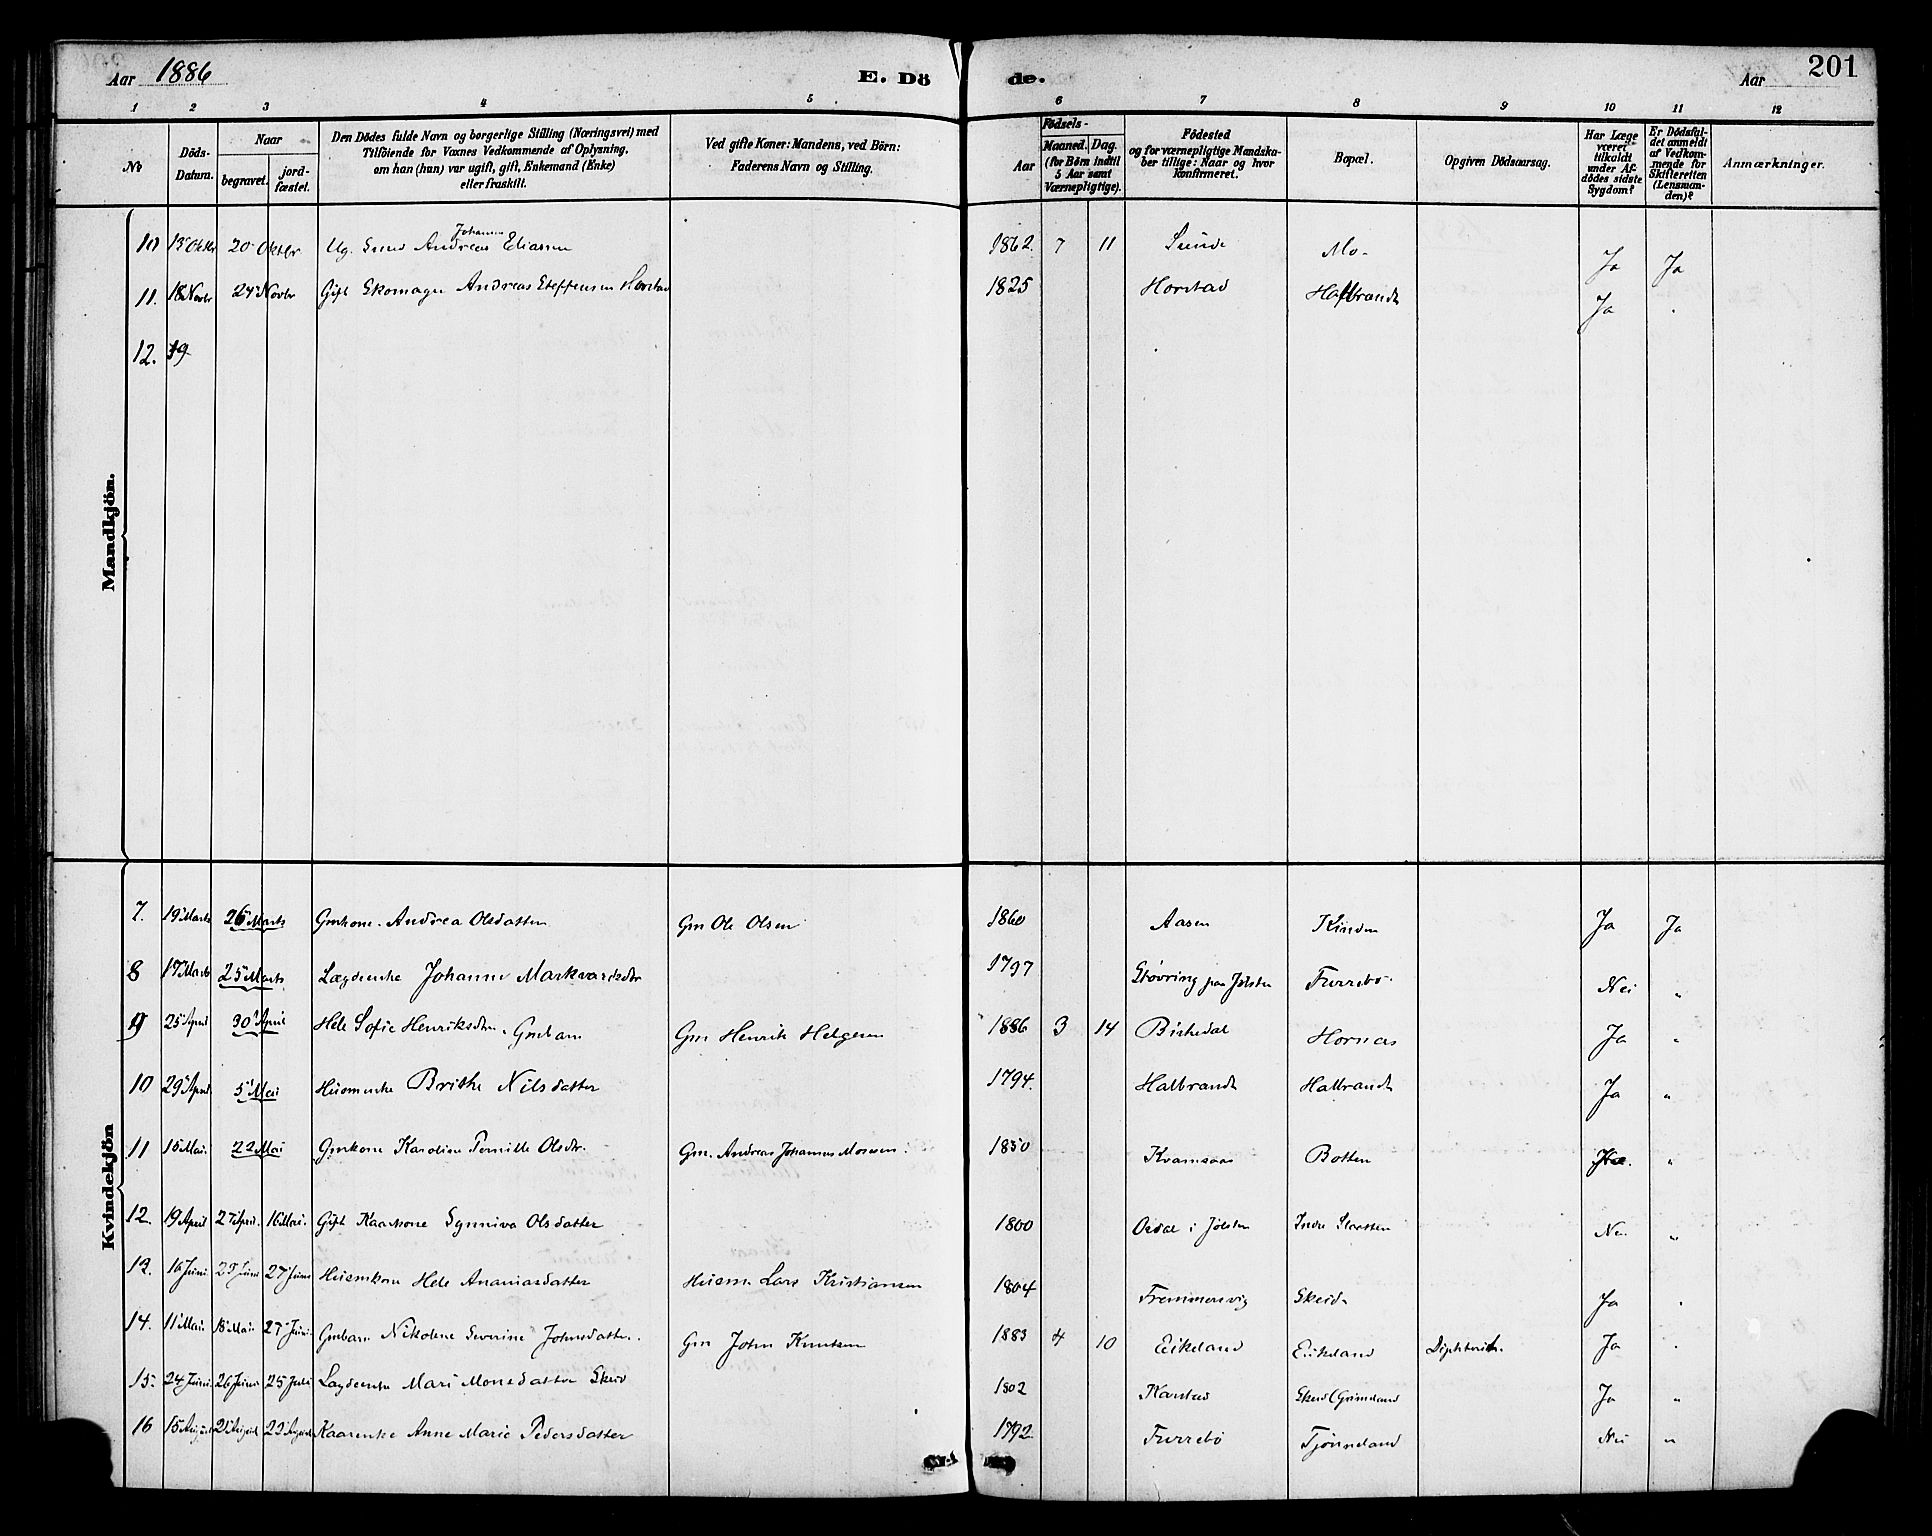 Aar 1886
E. Dö de.
Aar
201
1 2 3 4 5 6 7 8 9 10 11 12
№
Döds-Datum.
Naar
begravet.
jord-fæstet.
Den Dödes fulde Navn og borgerlige Stilling (Næringsvei) med
Tilföiende for Voxnes Vedkommende af Oplysning,
om han (hun) var ugift, gift, Enkemand (Enke)
eller fraskilt.
Ved gifte Koner: Mandens, ved Börn:
Faderens Navn og Stilling.
Födsels-
Aar
Maaned. Dag.
(for Børn indtil
5 Aar samt
Værnepligtige).
Födested
og for værnepligtige Mandska-
ber tillige: Naar og hvor
konfirmeret.
Bopæl.
Opgiven Dödsaarsag.
Har Læge
været
tilkaldt
under Af-
dödes sidste
Sygdom?
Er Dödsfal-
det anmeldt
af Vedkom-
mende for
Skifteretten
(Lensman-
den)?
Anmærkninger.
Mandkjön.
Johannes
10 13 Oktbr 20 Oktbr Ug. Andreas Eliassen 1862. 7 11 Sunde Mo. Ja Ja
11. 18 Novbr 24 Novbr Gift Skomager Andreas Steffensen Horstad 1825 Horstad Halbrendt Ja
12. 19
Kvindekjön
7. 19 Marts 26 Marts Gmkone Andrea Olsdatter Gm Ole Olsen 1860 Aasen Kinden Ja Ja
8 17 Marts 25 Marts Lægdenke Johanne Markvardsdtr 1797 Støvring paa Jølster Furrebø. Nei "
9 25 April 30 April Hele Sofie Henriksdtr. Gmbarn Gm Henrik Helgesen 1886 3 14 Birkedal Hornes Ja "
10 29 April 5 Mai Husmenke Brithe Nilsdatter 1794. Halbrandt Halbrandt Ja "
11 15 Mai. 22 Mai Gmkone Karoline Pernille Olsdtr. Gm. Andreas Johannes Monsen. 1850 Kvamsaas Botten "
12. 19 April 27 April. 16 Mai. Gift Kaarkone Synniva Olsdatter 1800 Osdal i Jølster Indre Nei. "
13. 16 Juni 25 Juni 27 Juni Husmkone Hele Ananiasdatter Husm Lars Kristiansen 1804 Fremmersvig Skeid. Ja
14. 11 Mai. 18 Mai. 27 Juni. Gmbarn Nikoline Severine Johnsdatter. Gm John Knutsen 1883 4 10 Eikeland Eikeland Diphterit. Ja
15. 24 Juni. 26 Juni 25 Juli Lægdenke Mari Monsdatter Skeid 1802 Karstad Skeid (Grimeland Ja "
16 15 August 21 August 22 August Kaarenke Anne Marie Pedersdatter 1792. Furrebø Tjønneland Nei "